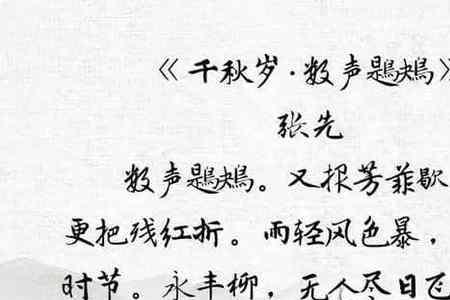 《千秋岁·数声鶗鴂》
张先
数声鶗鴂。又报芳菲歇
更把残红折。雨轻风色暴，
时节。永丰柳，无人尽日飞